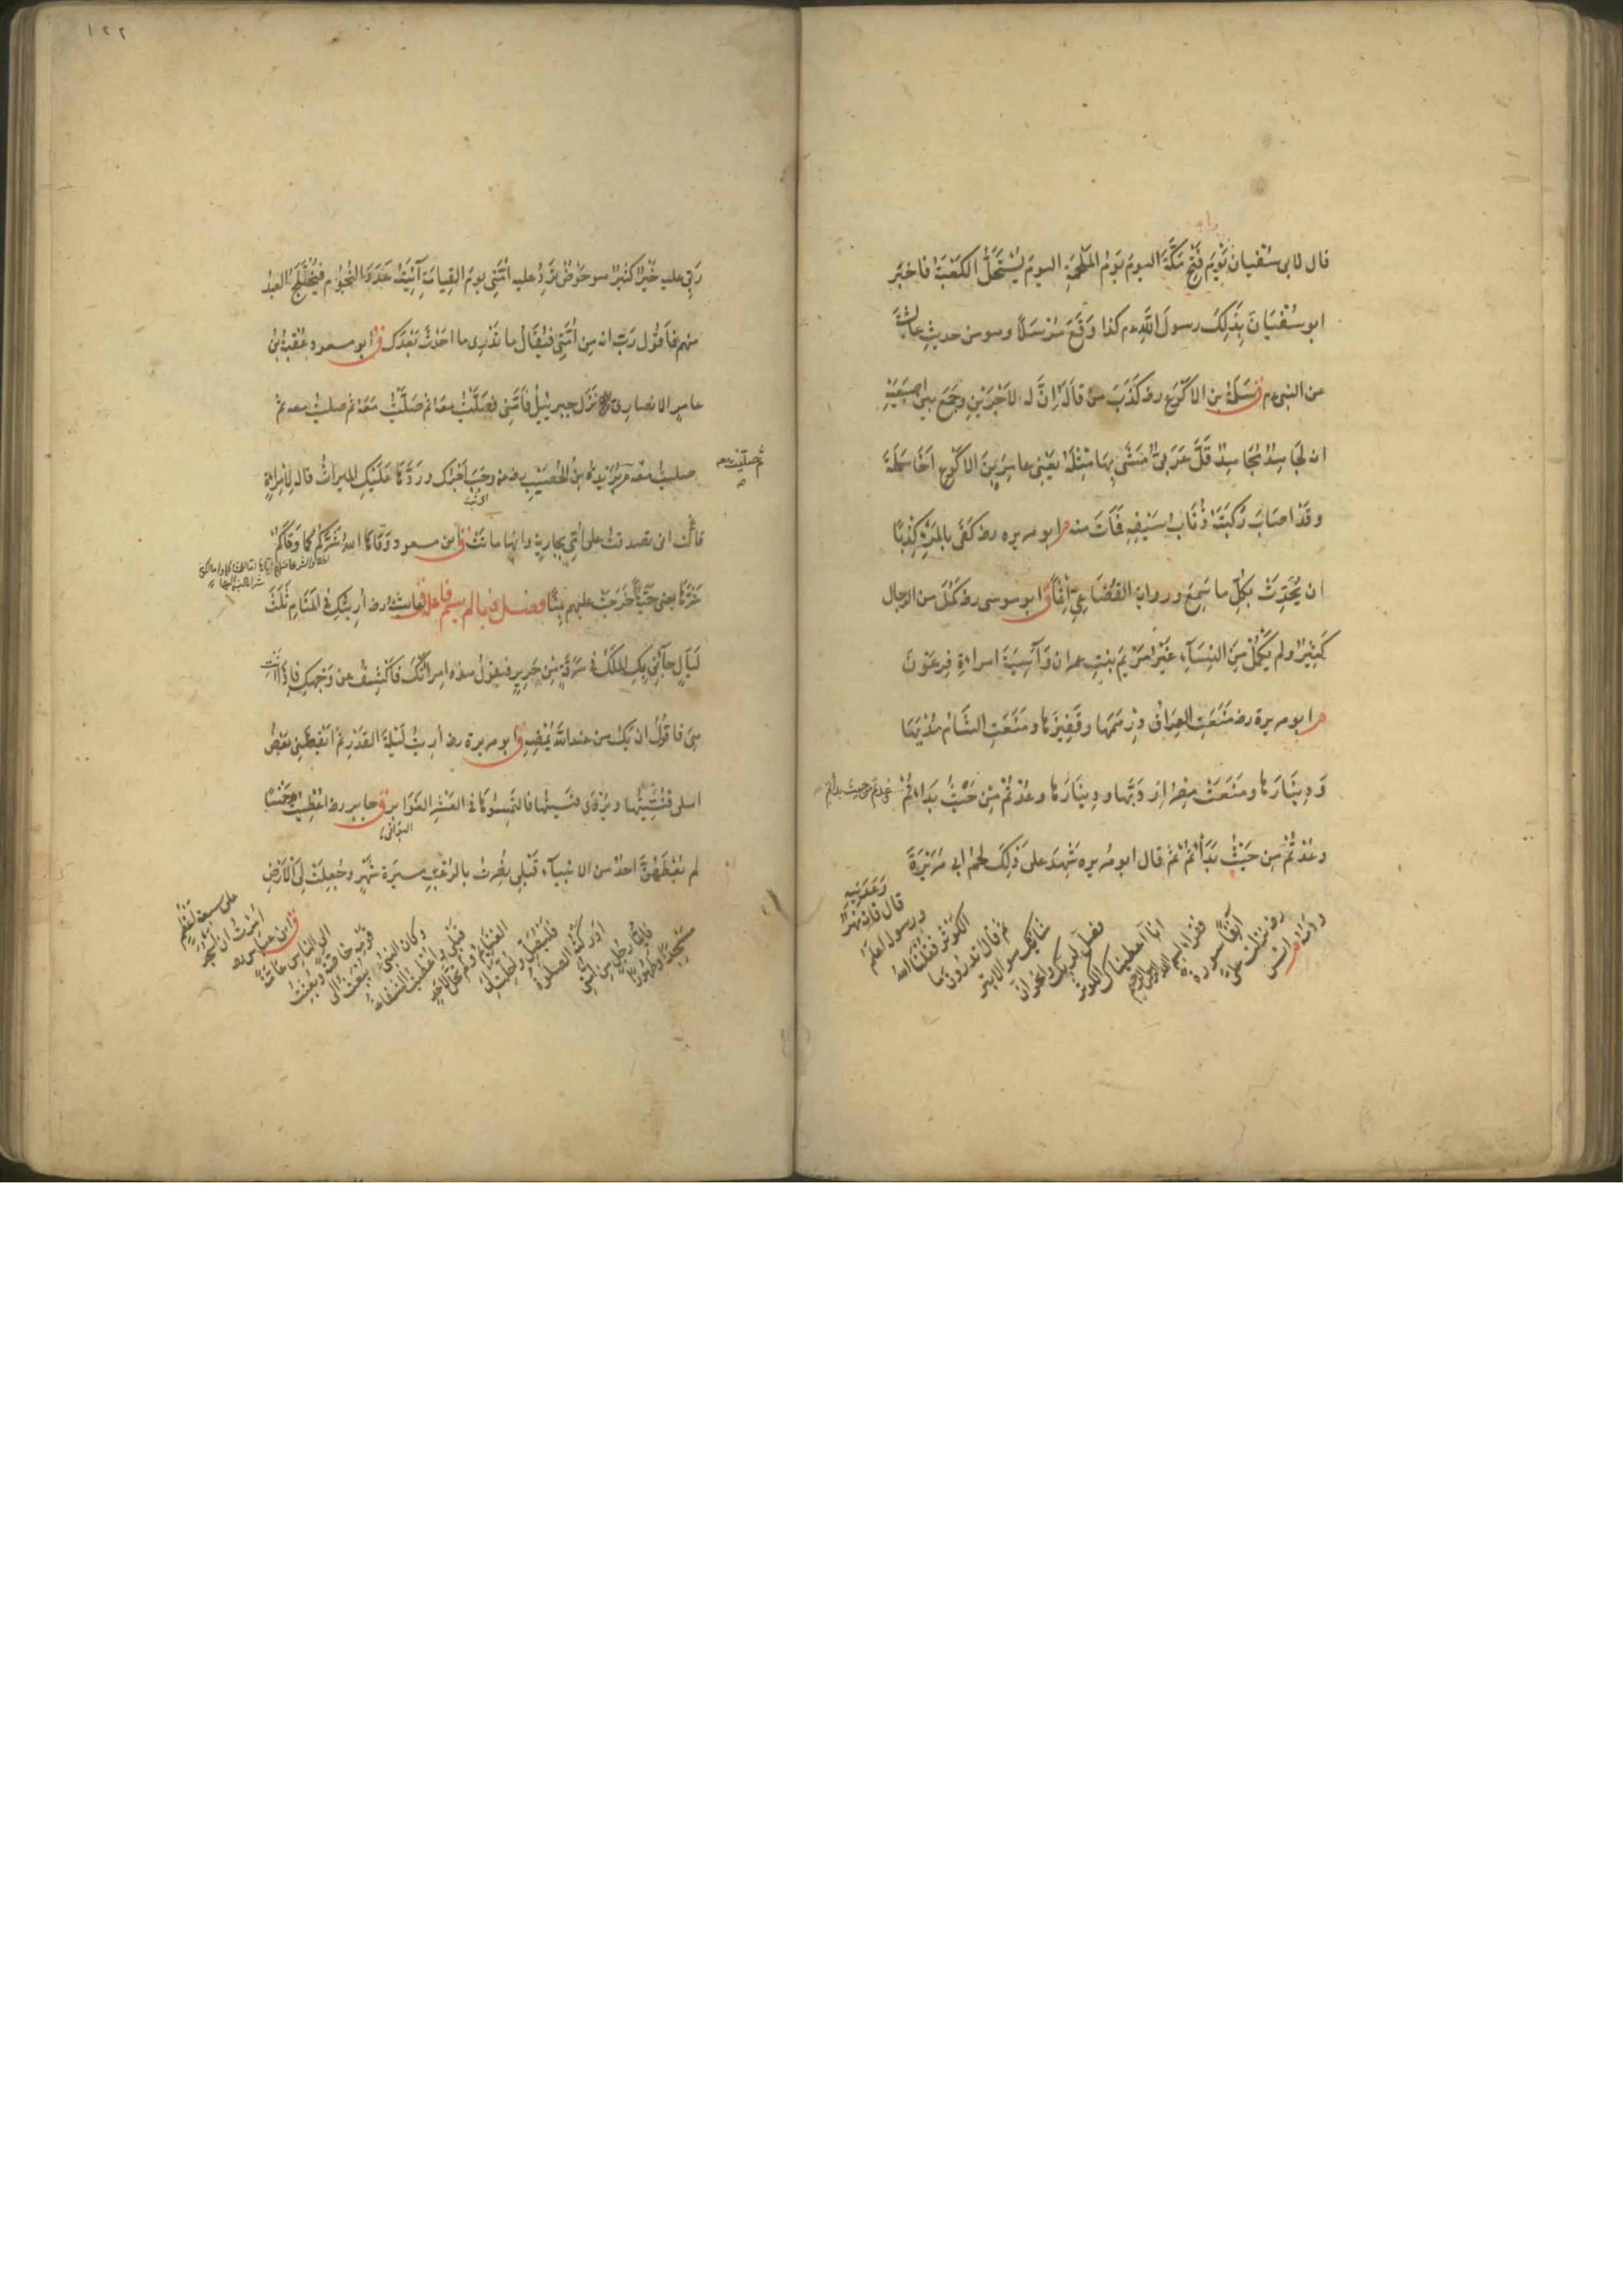 قال لابى سُفْيان يَوْمَ فَتْحِ مَكَّةَ اليومَ يَوْمُ المَلْحَمَةِ اليومَ يُسْتَحَلُّ الكَعْبَةُ فاخبَر
ابو سُفْيَانَ بِذَلِكَ رسولَ اللّٰهِ ءم كذا وَقَعَ مُرْسَلًا وهو من حديثِ عائشةَ
عن النبى ءم ق سَلَمَةُ بن الاكْوَعِ رضـ كَذَبَ مَنْ قالَهُ اِنَّ لَهُ لَاَجْرَيْنِ وجَمَعَ بينَ اصبَعَيْهِ
انه لَجَاهِدٌ مُجَاهِدٌ قَلَّ عَرَبِىٌّ مَشَى بِهَا مِثْلَهُ يَعْنِى عامِرَ بنَ الاكْوَعِ اَخَا سَلَمَةَ
وقَدْ اصَابَ رُكْبَتَهُ ذُبَابُ سَيْفِهِ فمَاتَ منه م ابو هريره رضـ كَفَى بالمَرْءِ كَذِبًا
ان يُحَدِّثَ بِكُلِّ ما سَمِعَ ورواية القُضَاعِىِّ اِثْمًا ق ابو موسى رضـ كَمُلَ من الرجال
كَثِيرٌ ولم يَكْمُلْ مِنَ النِسَآءِ غَيْرُ مَرْيَمَ بِنْتِ عمران وَآسِيَةَ امراءةِ فِرعَوْنَ
م ابو هريرة رضـ مَنَعَتِ العِرَاقُ دِرْهَمَهَا وقَفِيزَهَا ومَنَعَتِ الشَامُ مُدْيَهَا
وَدِينَارَهَا ومَنَعَتْ مِصْرُ اِرْدَبَّهَا ودِينَارَهَا وعُدْتُمْ مِنْ حَيْثُ بَدَاءْتُمْ
وعدتم من حيث بداتم
وعُدْتُمْ مِن حَيْثُ بَدَأْتُمْ ثم قال ابو هُريره شَهِدَ على ذَلِكَ لحمُ ابى هُرَيْرَةَ
ودَمُهُ م انس
رضـ نزلت عَلَىَّ
آنِفًا سورة
فقراء بسم اللّٰه الرحمن الرحيم
انا اعطيناك الكوثر
فصل لربك وانحر ان
شانئك هو الابتر
ثم قال تدرُونَ ما
الكوثر فقُلْنَا اللّٰهُ
ورسوله اعلمُ
قال فانه نهرٌ
وَعَدَنِيهِ
١٢٢
رَبِّى عليه خَيْرٌ كَثِيرٌ هو حَوْضٌ تَرِدُ عليه اُمَّتِى يومَ القِيامَةِ آنِيَتُهُ عَدَدَ النُجُومِ فيُخْتَلَجُ العبْدُ
منهم فاَقُولُ رَبِّ انه مِن اُمَّتِى فيُقَالُ ما تَدْرِى ما احْدَثَ بَعْدَكَ ق ابو مسعود عُقْبَةُ بْنُ
عامِرٍ الانصارى نَزَلَ جبرئيلُ فاَمَّنِى فصَلَّيْتُ معَهُ ثم صَلَّيْتُ مَعَهُ ثم صليتُ معه ثم
ثم صليت معه
صليتُ معَه م بُرَيْدَةُ بنُ الحُصَيْبِ رضـ وجَبَ اَجْرُكِ ورَدَّهَا عَلَيْكِ المِيراثُ قاله لِامْرَاةٍ
قالَتْ انى تصدقتُ على اُمِّى بجاريةٍ وانها ماتَتْ ق ابن مسعود وَقَاهَا اللّٰهُ شَرَّكُمْ كما وَقَاكُمْ
شَرَّهَا يعنى حَيَّةً خَرَجَتْ عليهم بمِنًا فصل فيما لم يسم فاعله ق عايشة رضـ اُرِيتُكِ فى المَنَامِ ثَلَثَ
لَيَالٍ جآءَنِى بِكِ المَلَكُ فى سَرَقَةٍ مِنْ حَرِيرٍ فيقولُ هذه امراَتُكَ فاَكْشِفُ عن وَجْهِكِ فاِذَا اَنْتِ
هِىَ فاقُولُ ان يَكُ من عندِ اللّٰهِ يُمْضِهِ ق ابو هريرة رضـ اُرِيتُ لَيْلَةَ القَدْرِ ثم ايْقَظَنِى بَعْضُ
اهلى فنُسِّيتُهَا ويُرْوَى فنَسِيتُها فالتَمِسُوهَا فى العَشْرِ الغَوَابِرِ ق جابر رضـ اُعْطِيتُ خَمْسًا
البواقى
لم يُعْطَهُنَّ احدٌ من الانبيآءِ قَبْلِى نُصِرْتُ بالرُعْبِ مسيرَةَ شَهْرٍ وجُعِلَتْ لِىَ الاَرْضُ
مَسْجِدًا وطَهُورًا
فاَيُّمَا رَجُلٍ مِن اُمَّتِى
ادركَتْهُ الصلوةُ
فَلْيُصَلِّ واُحِلَّتْ لِىَ
الغَنَايمُ ولم تَحِلَّ لاَحَدٍ
قَبْلِى واُعْطِيتُ الشفاعَةَ
وكان النبىُّ يُبْعَثُ الى
قومِهِ خاصةً وبُعِثْتُ
الى الناسِ عامَّةً
ق ابن عباس رضـ
اُمِرْتُ ان اَسْجُدَ
على سبعةِ اَعْظُمٍ